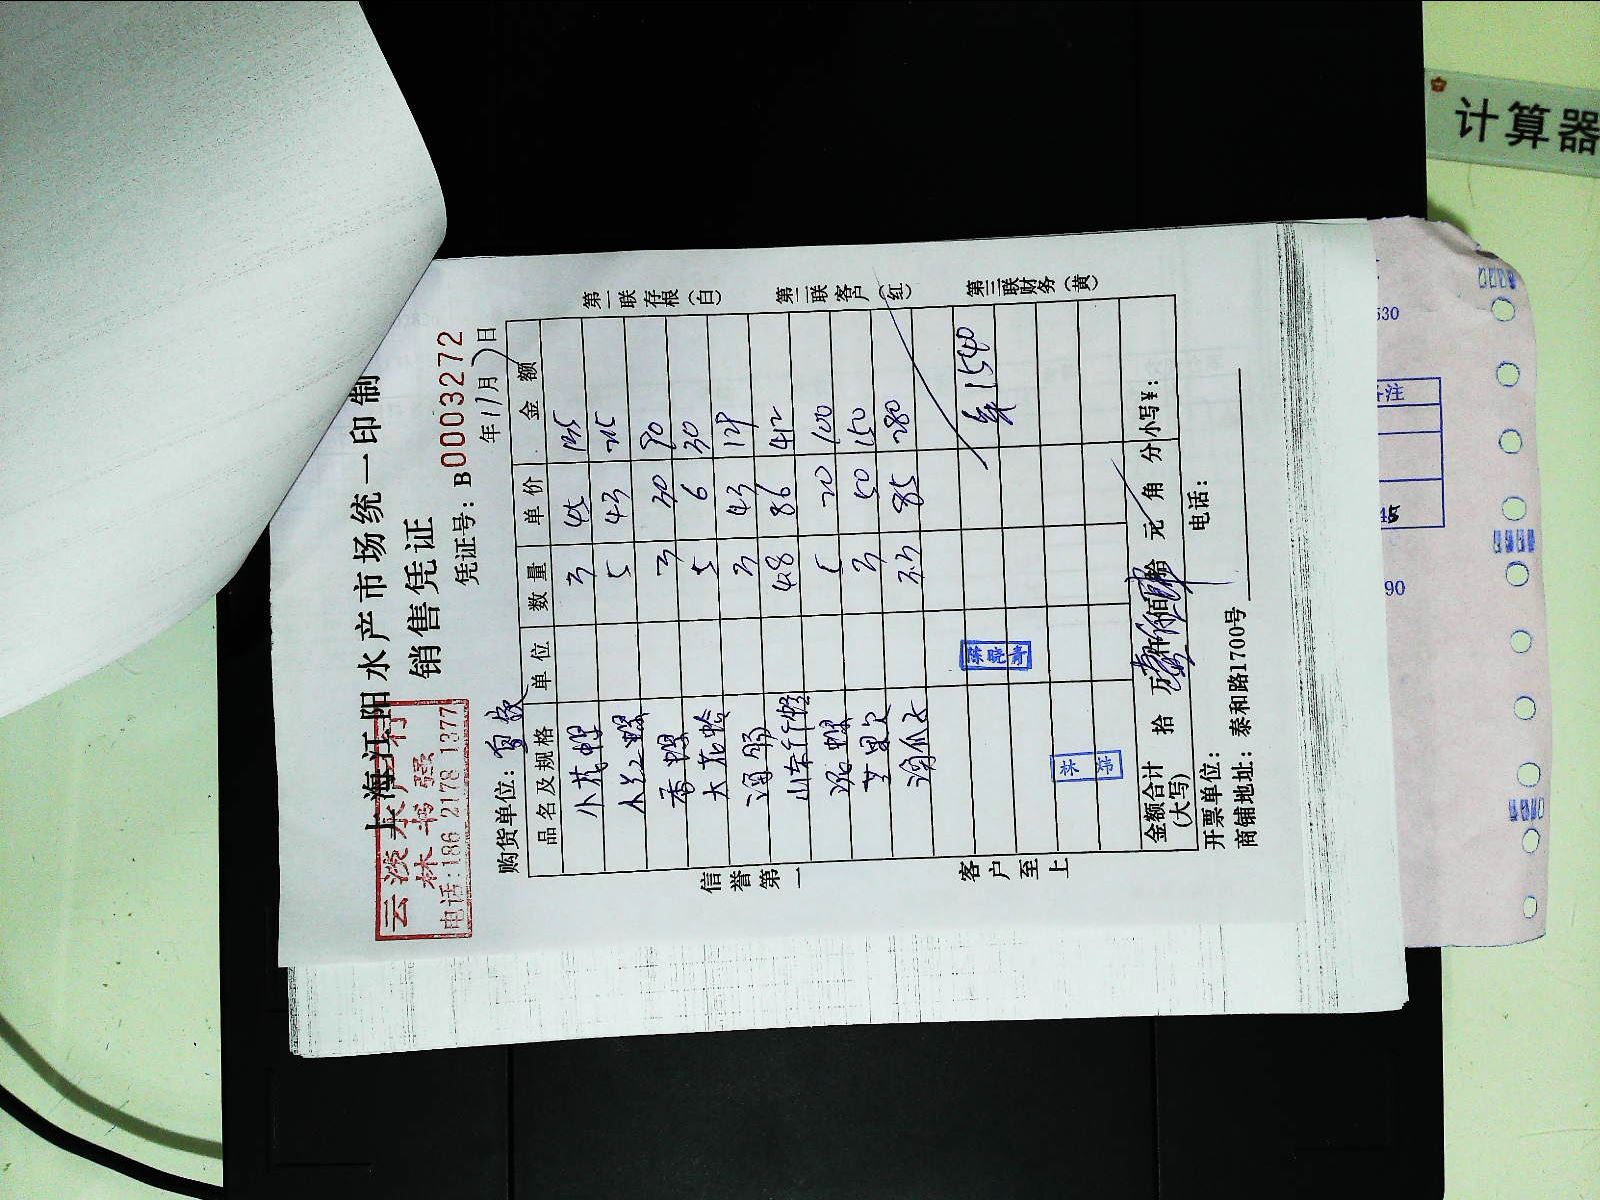 上海江阳水产市场统一印制
销售凭证
云淡水产行
林书强
电话:186 2178 1377
凭证号: B0003272
购货单位:
年 11月 日
品名及规格 单位 数量 单价 金额
小花螺 3 45 135
5 43 215
香螺 3 30 90
大花蛤 5 6 30
3 43 129
山东 48 86 412
泥螺 5 20 100
3 50 150
3.3 85 280
1540
陈晓青
金额合计(大写) 拾 万 仟 佰 拾 元 角 分 小写¥:
开票单位: 电话:
商铺地址: 泰和路1700号
信誉第一
客户至上
第一联存根(白)
第二联客户(红)
第三联财务(黄)
计算器
530
备注
90